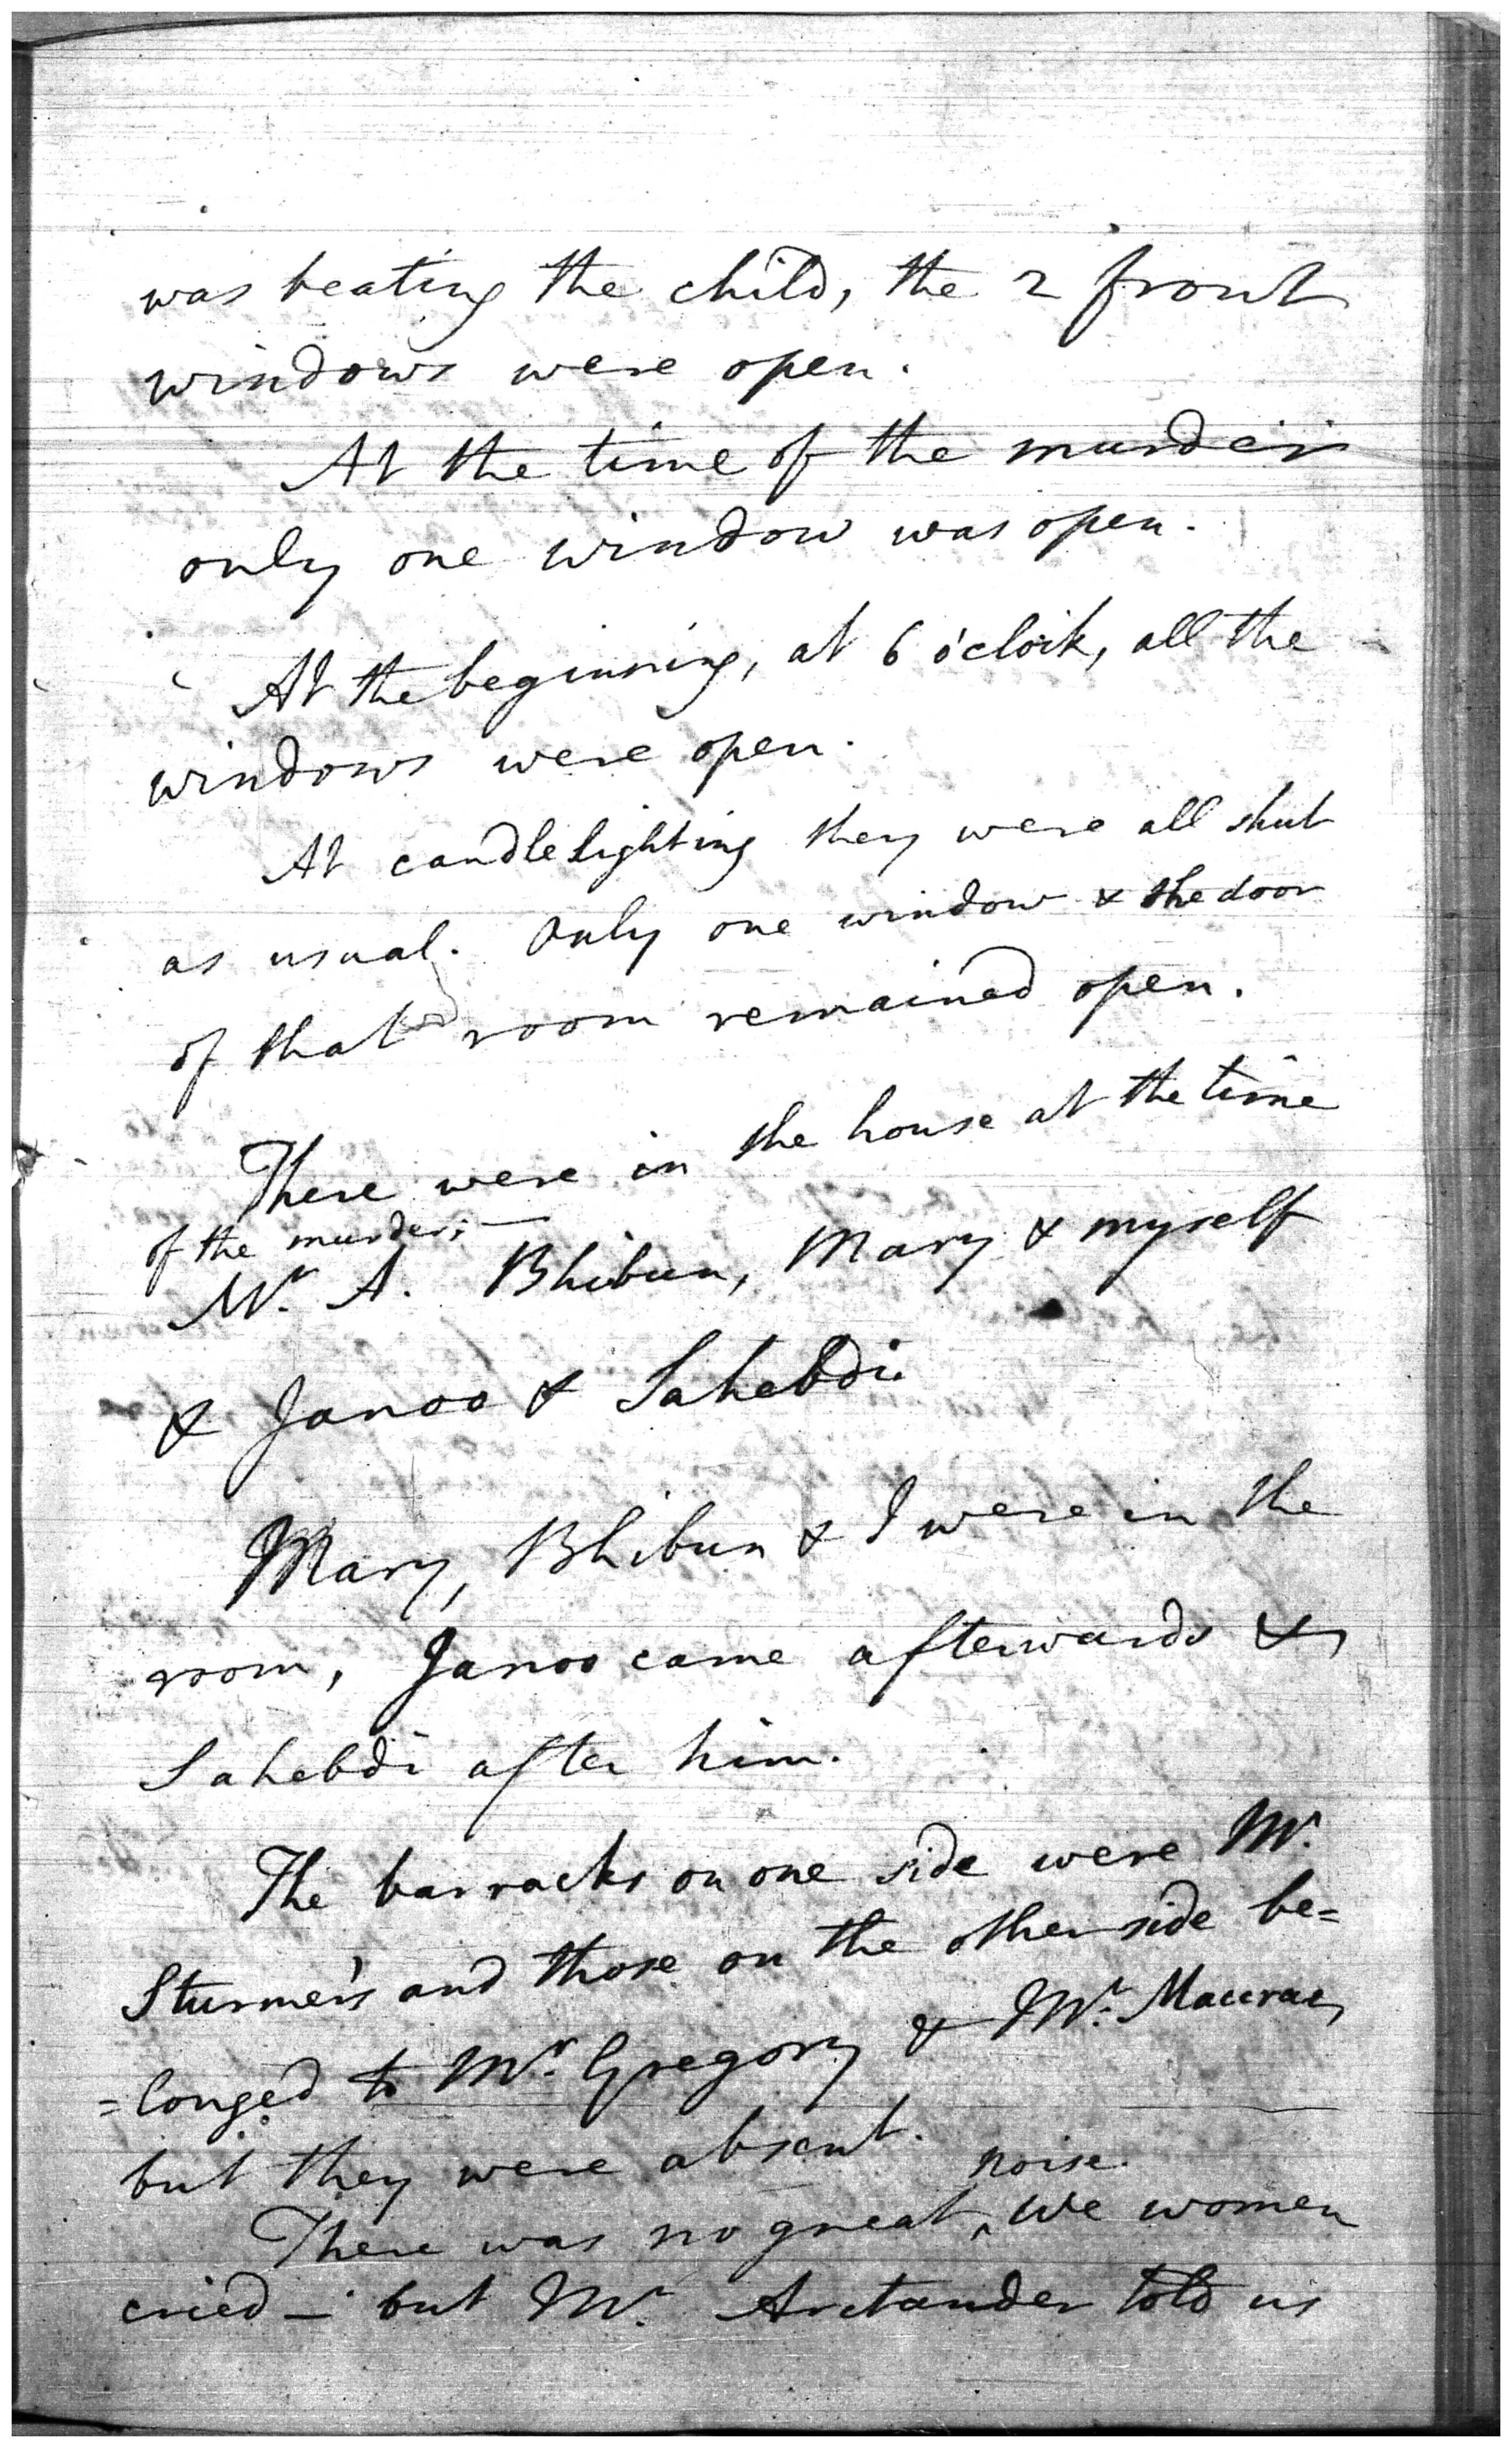 was beating the child, the 2 front
windows were open.
At the time of the murder
only one window was open.
At the beginning, at 6 o'clock, all the
windows were open.
At candlelighting they were all shut
as usual. Only one window & the door
of that room remained open.
There were in the house at the time
of the murder; —
Mr. A. Bhibun, Mary & myself
& Janoo & Sahebdi.
Mary, Bhibun & I were in the
room, Janoo came afterwards &
Sahebdi after him.
The barracks on one side were Mr.
Sturmer's and those on the other side be=
=longed to Mr. Gregory & Mr. Macrae,
but they were absent.
noise.
There was no great ‸ We women
cried — but Mr. Arctander told us